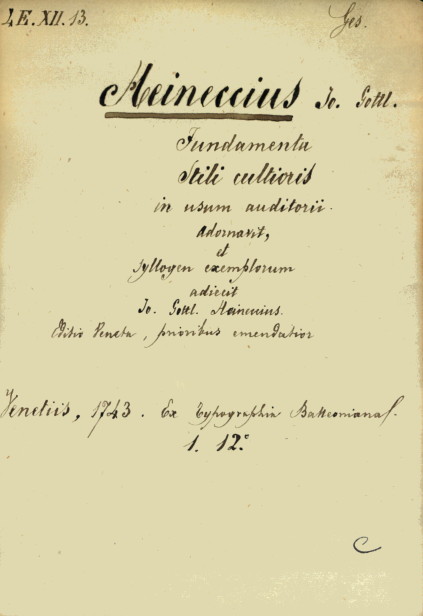 4E.XII.13. Ges.
Heineccius Jo. Gottl.
Fundamenta
Stili cultioris
in usum auditorii.
Adornavit,
et
syllogen exemplorum
adiecit
Jo. Gottl. Heineccius.
Editio Veneta, prioribus emendatior
Venetiis, 1743. Ex Typographia
1. 12º
C